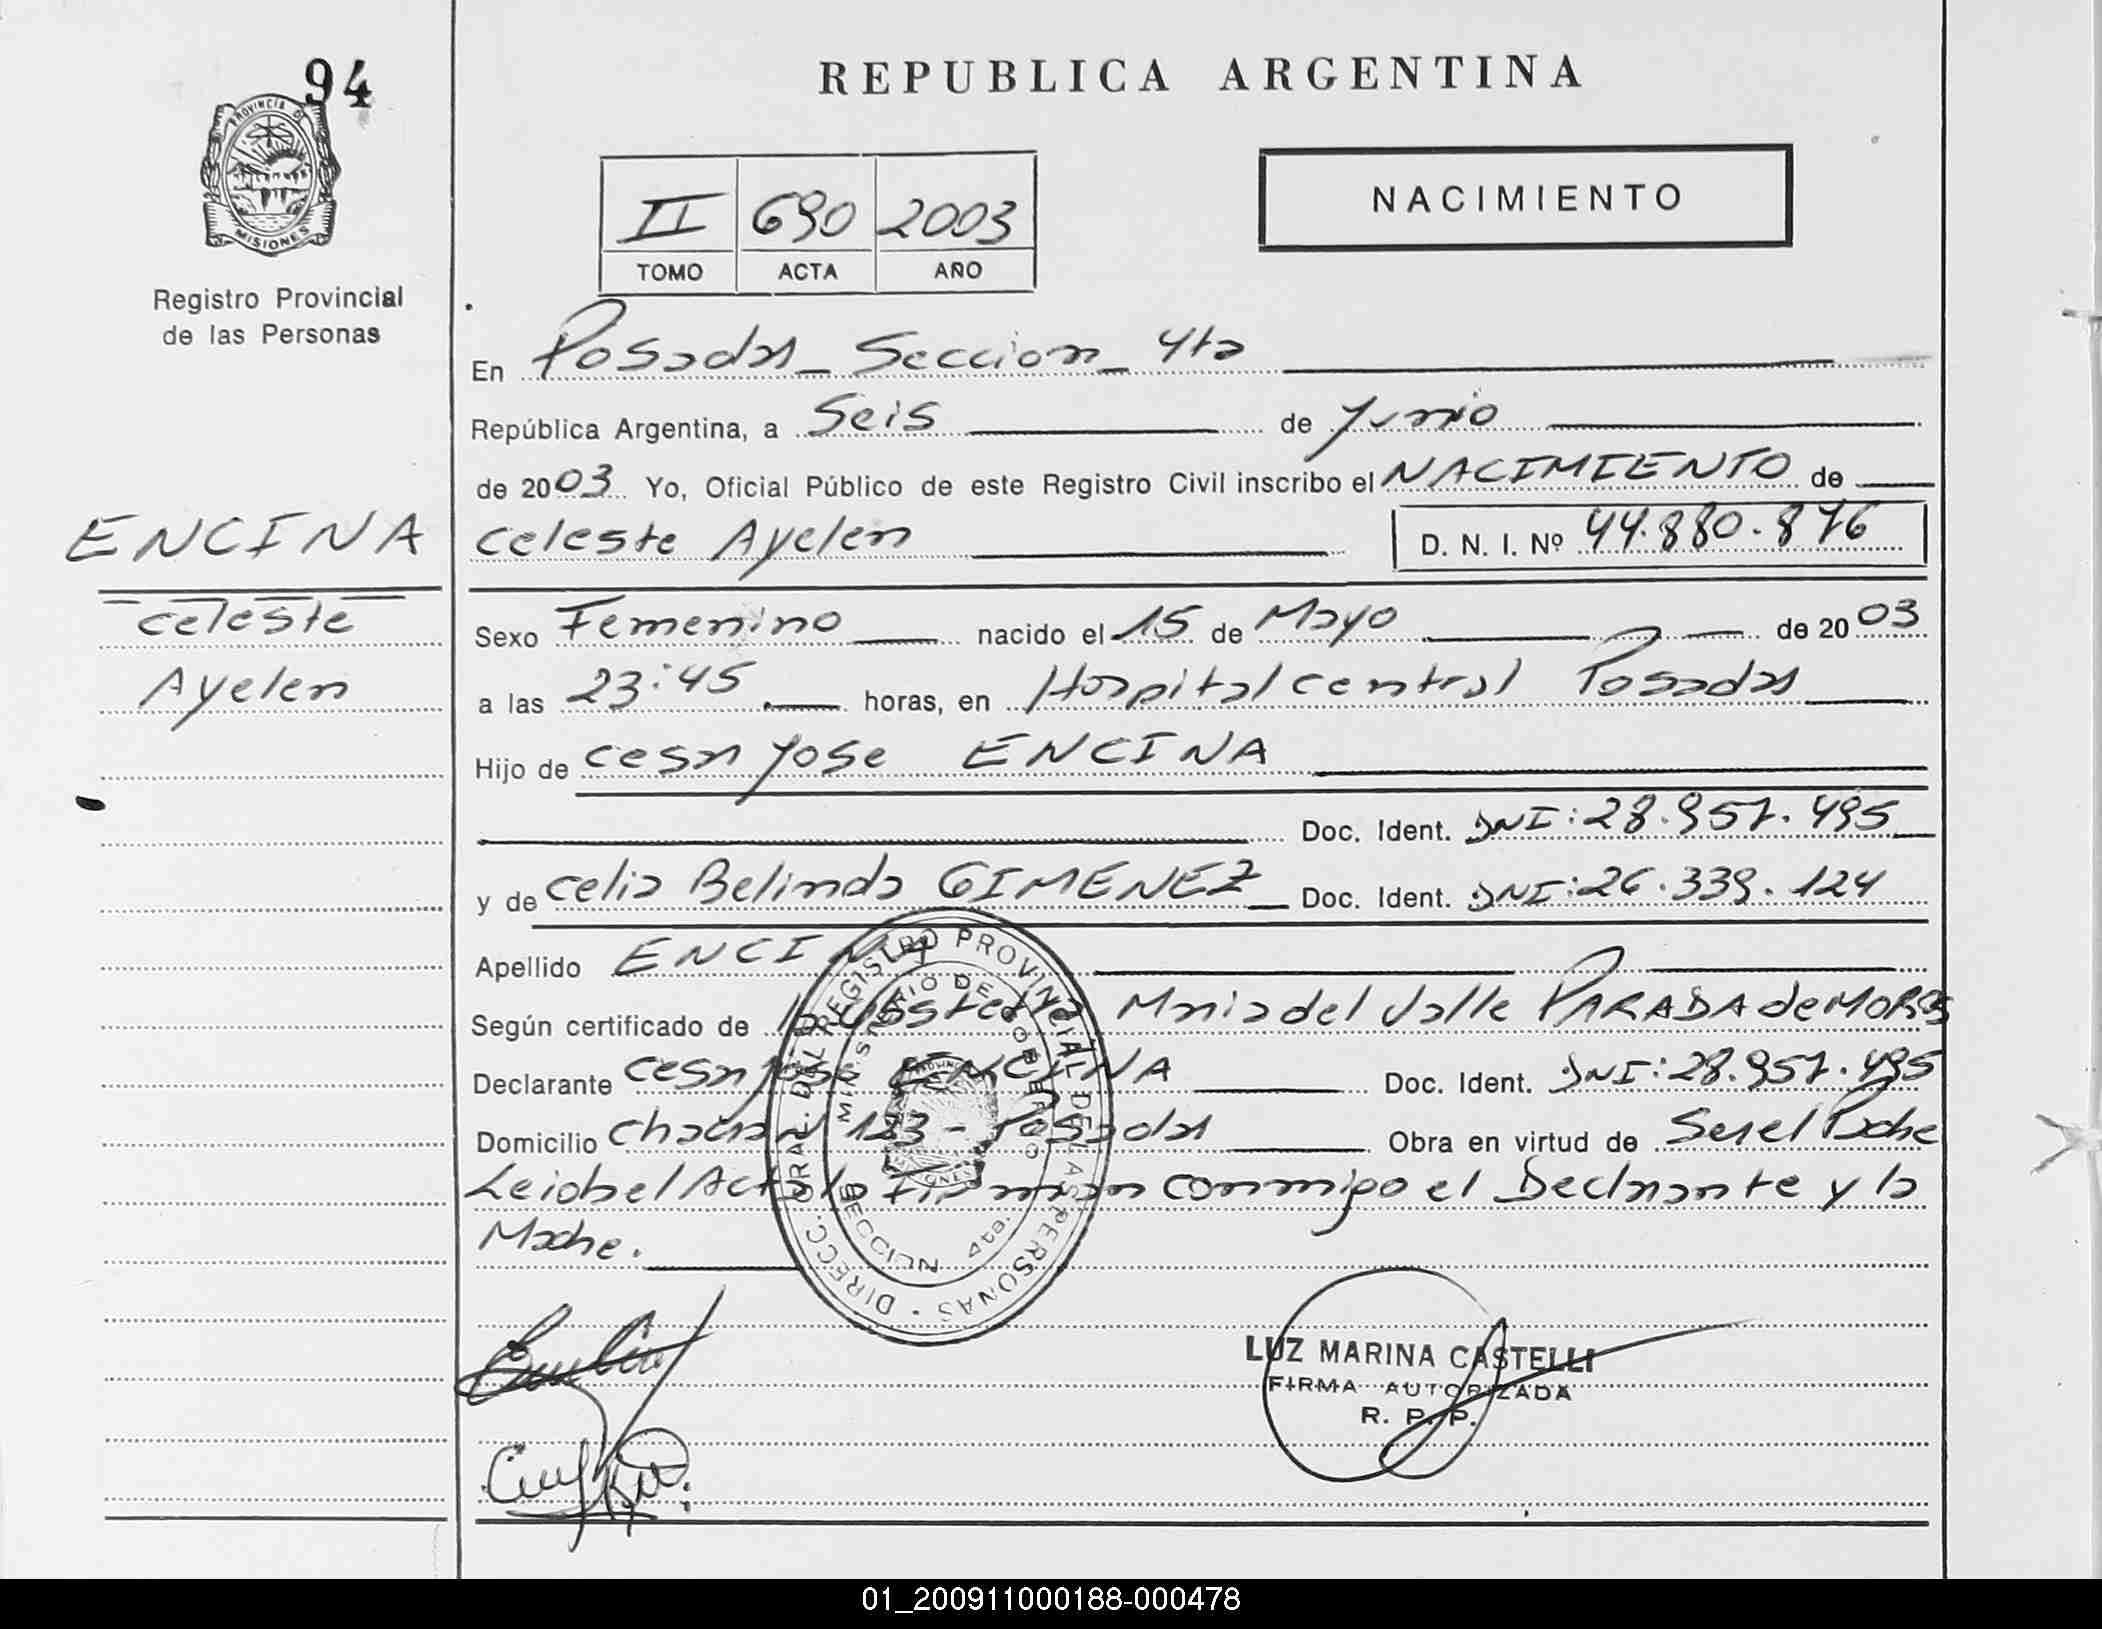 94
REPUBLICA ARGENTINA
PROVINCIA DE
MISIONES
Registro Provincial
de las Personas
NACIMIENTO
II 690 2003
TOMO ACTA AÑO
En Posadas_Seccion_4ta
República Argentina, a Seis de Junio
de 2003 Yo, Oficial Público de este Registro Civil inscribo el NACIMIENTO de
ENCINA
Celeste
Ayelen
Celeste Ayelen D. N. I. Nº 44.880.876
Sexo Femenino nacido el 15 de Mayo de 2003
a las 23:45 horas, en Hospital central Posadas
Hijo de Cesar Jose ENCINA
Doc. Ident. DNI: 28.957.495
y de Celia Belinda GIMENEZ Doc. Ident. DNI: 26.339.124
Apellido ENCINA
Según certificado de la obstetra Maria del Valle PARADA de MORES
Declarante Cesar Jose ENCINA Doc. Ident. DNI: 28.957.495
Domicilio 123 - Posadas Obra en virtud de Ser el Padre
Leida el Acta la firman conmigo el Declarante y la
Madre.
DIRECC. GRAL. DEL REGISTRO PROVINCIAL DE LAS PERSONAS
MINISTERIO DE GOBIERNO
SECCION 4ta.
LUZ MARINA CASTELLI
FIRMA AUTORIZADA
R. P. P.
01_200911000188-000478